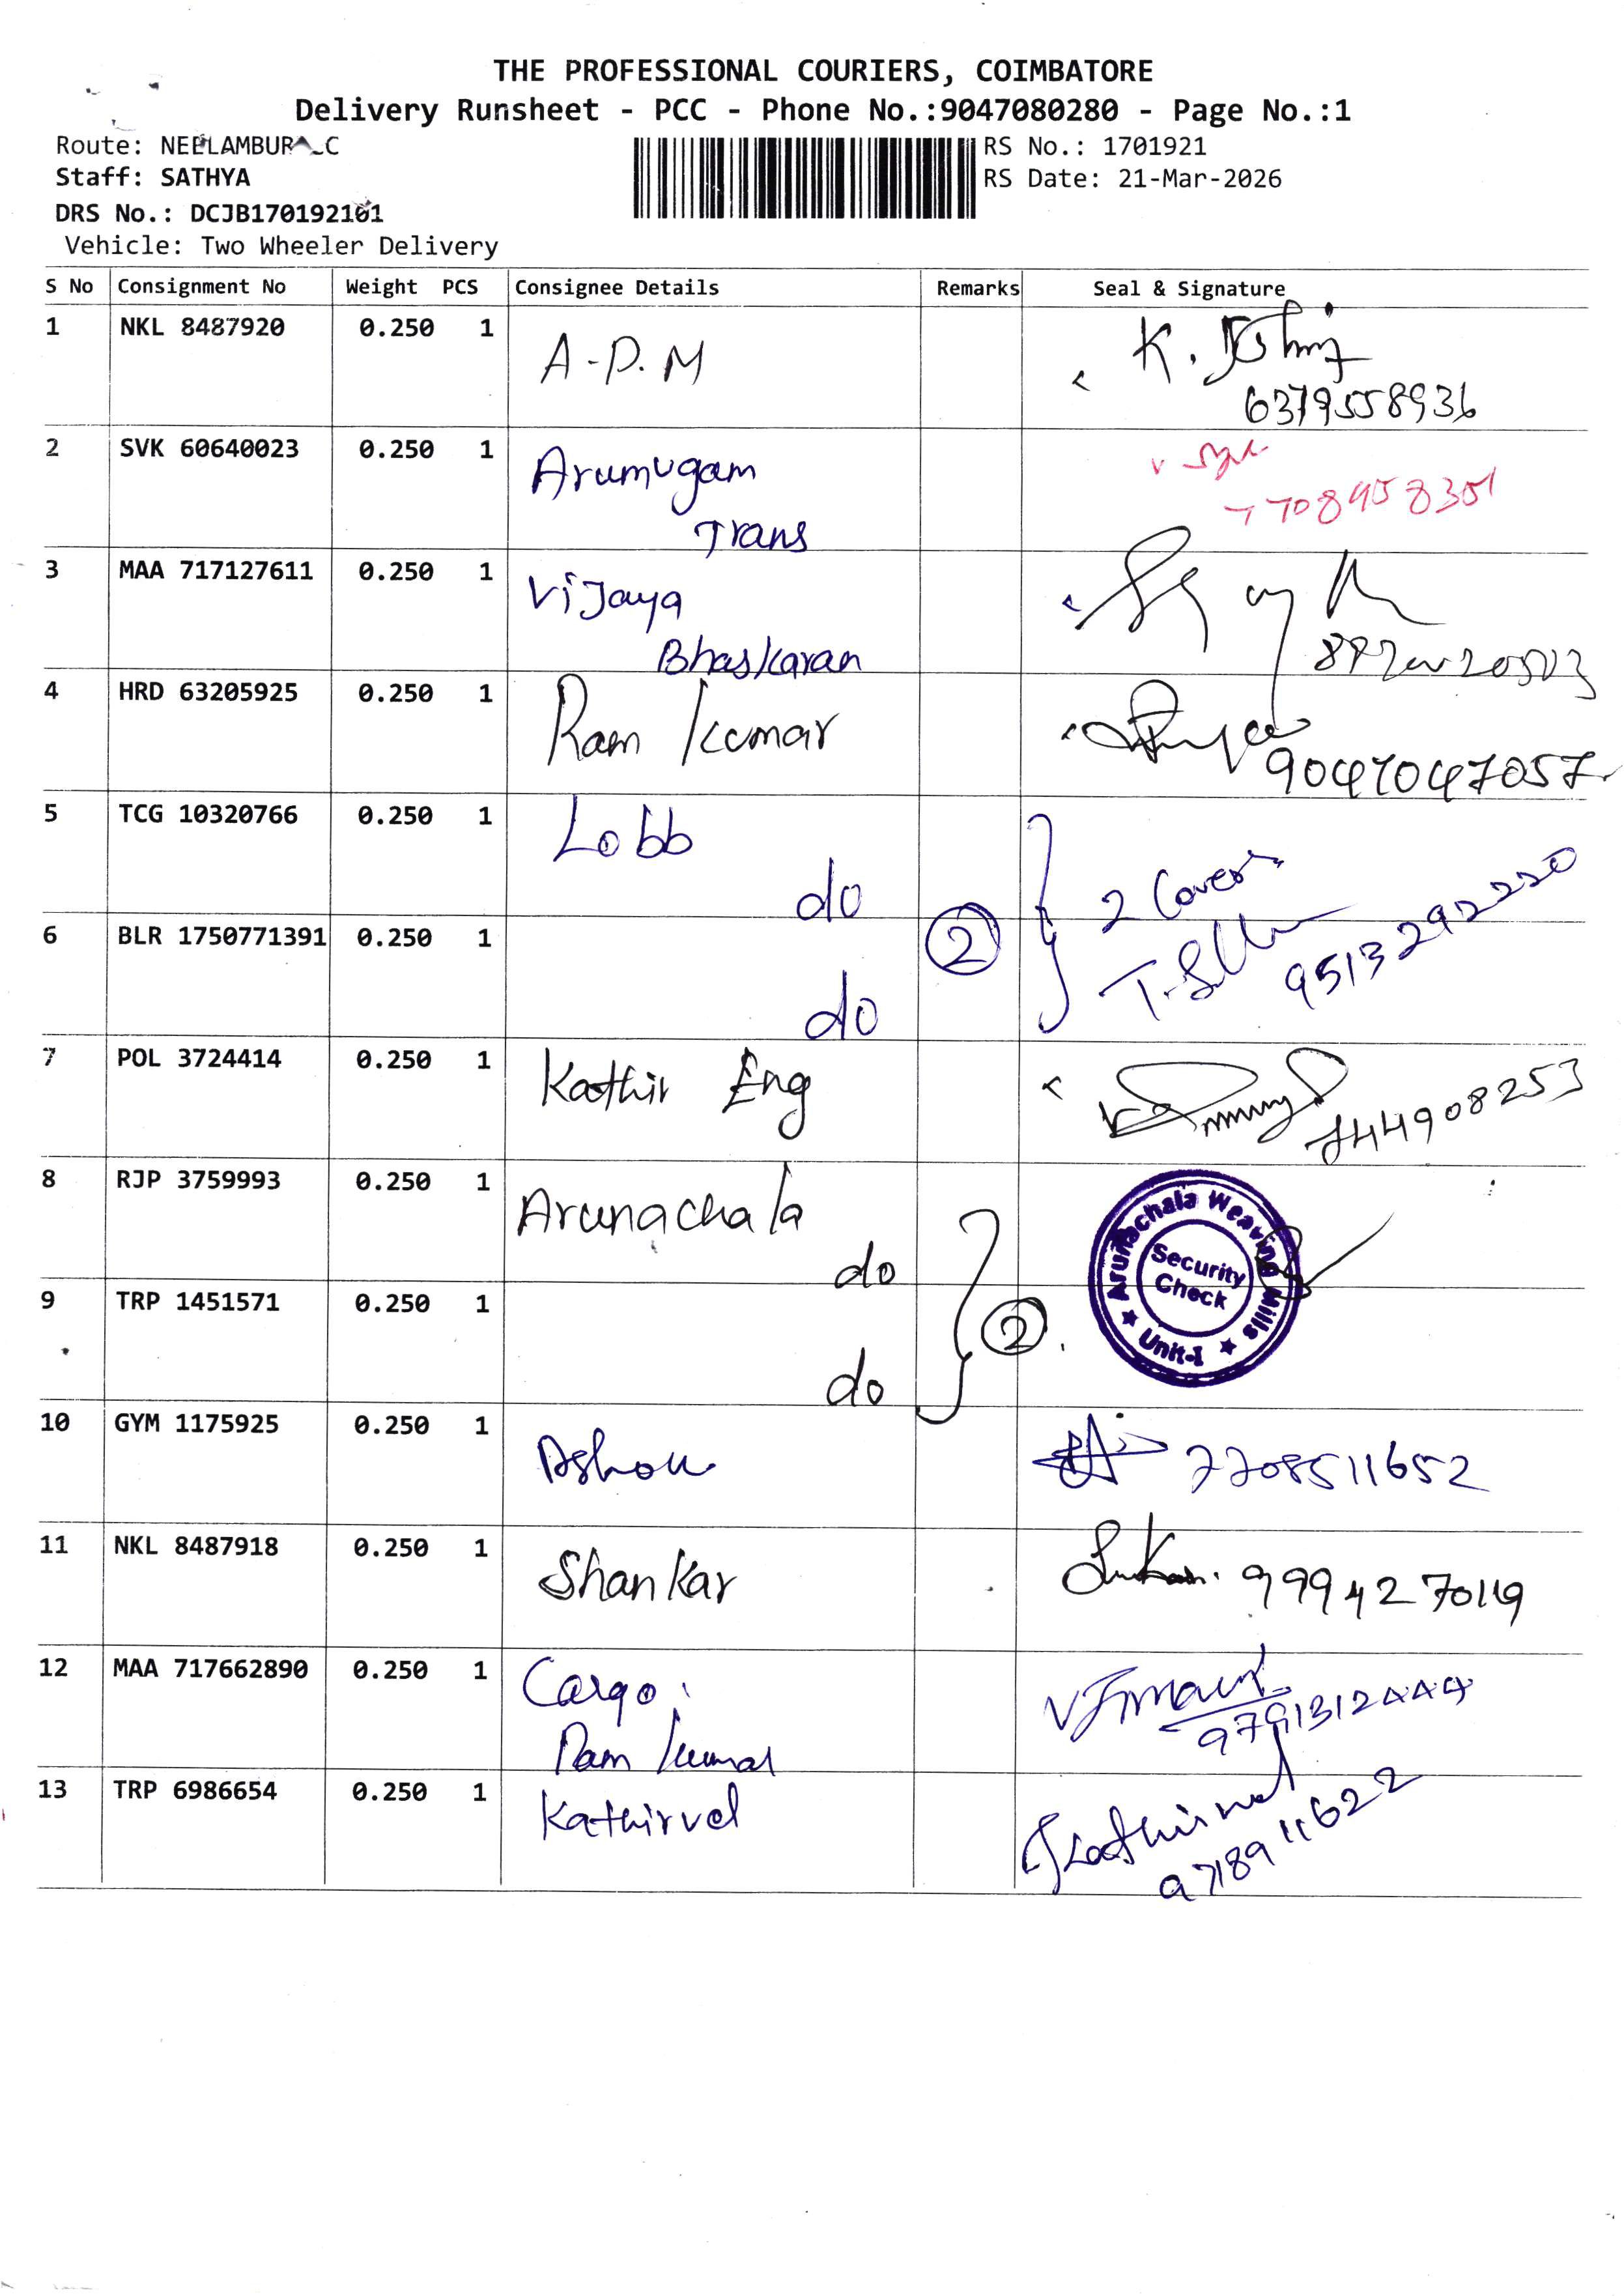 THE PROFESSIONAL COURIERS, COIMBATORE
Delivery Runsheet - PCC - Phone No.:9047080280 - Page No.:1
Route: NEELAMBUR
Staff: SATHYA
DRS No.: DCJB170192101
Vehicle: Two Wheeler Delivery
RS No.: 1701921
RS Date: 21-Mar-2026
S No Consignment No Weight PCS Consignee Details Remarks Seal & Signature
1 NKL 8487920 0.250 1 A-P.M K.
6379558936
2 SVK 60640023 0.250 1 Arumugam
Trans
7708958301
3 MAA 717127611 0.250 1 Vijaya
Bhaskaran
4 HRD 63205925 0.250 1 Ram Kumar
9047047057
5 TCG 10320766 0.250 1 Lobb
do
2 Covers
6 BLR 1750771391 0.250 1
2
9513292220
do
7 POL 3724414 0.250 1 Kathir Eng
8 RJP 3759993 0.250 1 Arunachala
do
Arunachala Weaving Mills
Security
Check
Unit-I
9 TRP 1451571 0.250 1
2
do
10 GYM 1175925 0.250 1 Ashok
7708511652
11 NKL 8487918 0.250 1 Shankar
9994270119
12 MAA 717662890 0.250 1 Cargo
Ram Kumar
9791312444
13 TRP 6986654 0.250 1 Kathirvel
Kathirvel
9718911622